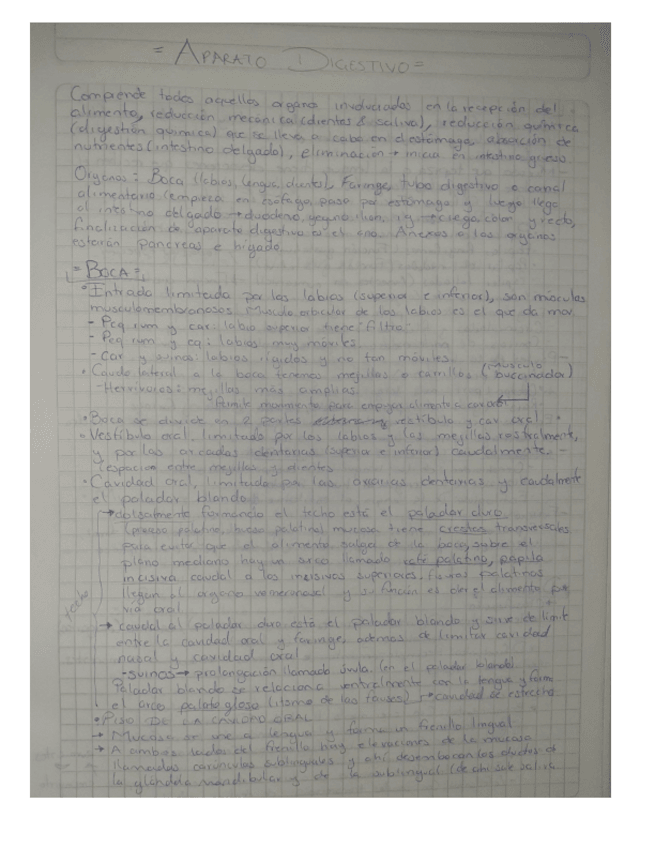 = APARATO DIGESTIVO =
Comprende todos aquellos organos involucrados en la recepción del
alimento, reducción mecanica (dientes & saliva), reducción química
(digestión quimica) que se lleva a cabo en el estómago, absorción de
nutrientes (intestino delgado), eliminación → inicia en intestino grueso
Organos: Boca (labios, lengua, dientes), Faringe, tubo digestivo o canal
alimentario (empieza en esófago, pasa por estómago y luego llega
al intestino delgado → duodeno, yeyuno, ilion, ig → ciego, colon y recto,
finalización de aparato digestivo es el ano. Anexos a los organos
estarán pancreas e higado.
= BOCA =
• Entrada limitada por los labios (superior e inferior), son
musculomembranosos. Músculo orbicular de los labios es el que da mov
- Peq rum y car: labio superior tiene "filtro"
- Peq rum y eq: labios muy móviles.
- Car y suinos: labios rígidos y no tan móviles.
• Caudo lateral a la boca tenemos mejillas o carrillos (Musculo
buccinador)
- Herviboros: mejillas más amplias
Permite movimiento para empujar alimento a
• Boca se divide en 2 partes vestíbulo y cav oral.
• Vestíbulo oral, limitado por los labios y las mejillas rostralmente,
y por las arcadas dentarias (superior e inferior) caudalmente.
(espacion entre mejillas y dientes
• Cavidad oral, limitada por las arcadas dentarias y caudalmente
el paladar blando
→ dorsalmente formando el techo está el paladar duro.
(proceso palatino, hueso palatino) mucosa tiene crestas transversales
para evitar que el alimento salga de la boca, sobre el
plano mediano hay un surco llamado rafe palatino, papila
incisiva caudal a los incisivos superiores,
llegan al organo vomeronasal y su función es oler el alimento por
vía oral
techo
→ caudal al paladar duro está el paladar blando y sirve de limit
entre la cavidad oral y faringe, ademas de limitar cavidad
nasal y cavidad oral
- suinos → prolongación llamada úvula (en el paladar blando)
Paladar blando se relaciona ventralmente con la lengua y form
el arco palatogloso (itsmo de las fauses) → cavidad se estrecha
• PISO DE LA CAVIDAD ORAL
→ Mucosa se une a lengua y forma un frenillo lingual
→ A ambos lados del frenillo hay elevaciones de la mucosa
llamadas carunculas sublinguales y ahí desembocan los ductos d
la glándula mandibular y de la sublingual (de ahi sale saliva